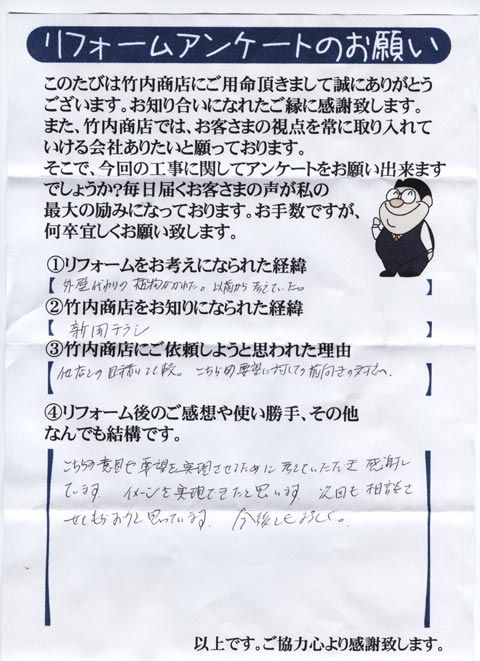 リフォームアンケートのお願い
このたびは竹内商店にご用命頂きまして誠にありがとう
ございます。お知り合いになれたご縁に感謝致します。
また、竹内商店では、お客さまの視点を常に取り入れて
いける会社ありたいと願っております。
そこで、今回の工事に関してアンケートをお願い出来ます
でしょうか?毎日届くお客さまの声が私の
最大の励みになっております。お手数ですが、
何卒宜しくお願い致します。
①リフォームをお考えになられた経緯
【外壁代わりの植物がかれた。以前から考えていた。】
②竹内商店をお知りになられた経緯
【新聞チラシ】
③竹内商店にご依頼しようと思われた理由
【他店との見積り比較。こちらの要望に対しての前向きの対応。】
④リフォーム後のご感想や使い勝手、その他
なんでも結構です。
こちらの意見や要望を実現させるために考えていただき感謝し
ています。イメージを実現できたと思います。次回も相談さ
せてもらおうと思っています。今後ともよろしく。
以上です。ご協力心より感謝致します。